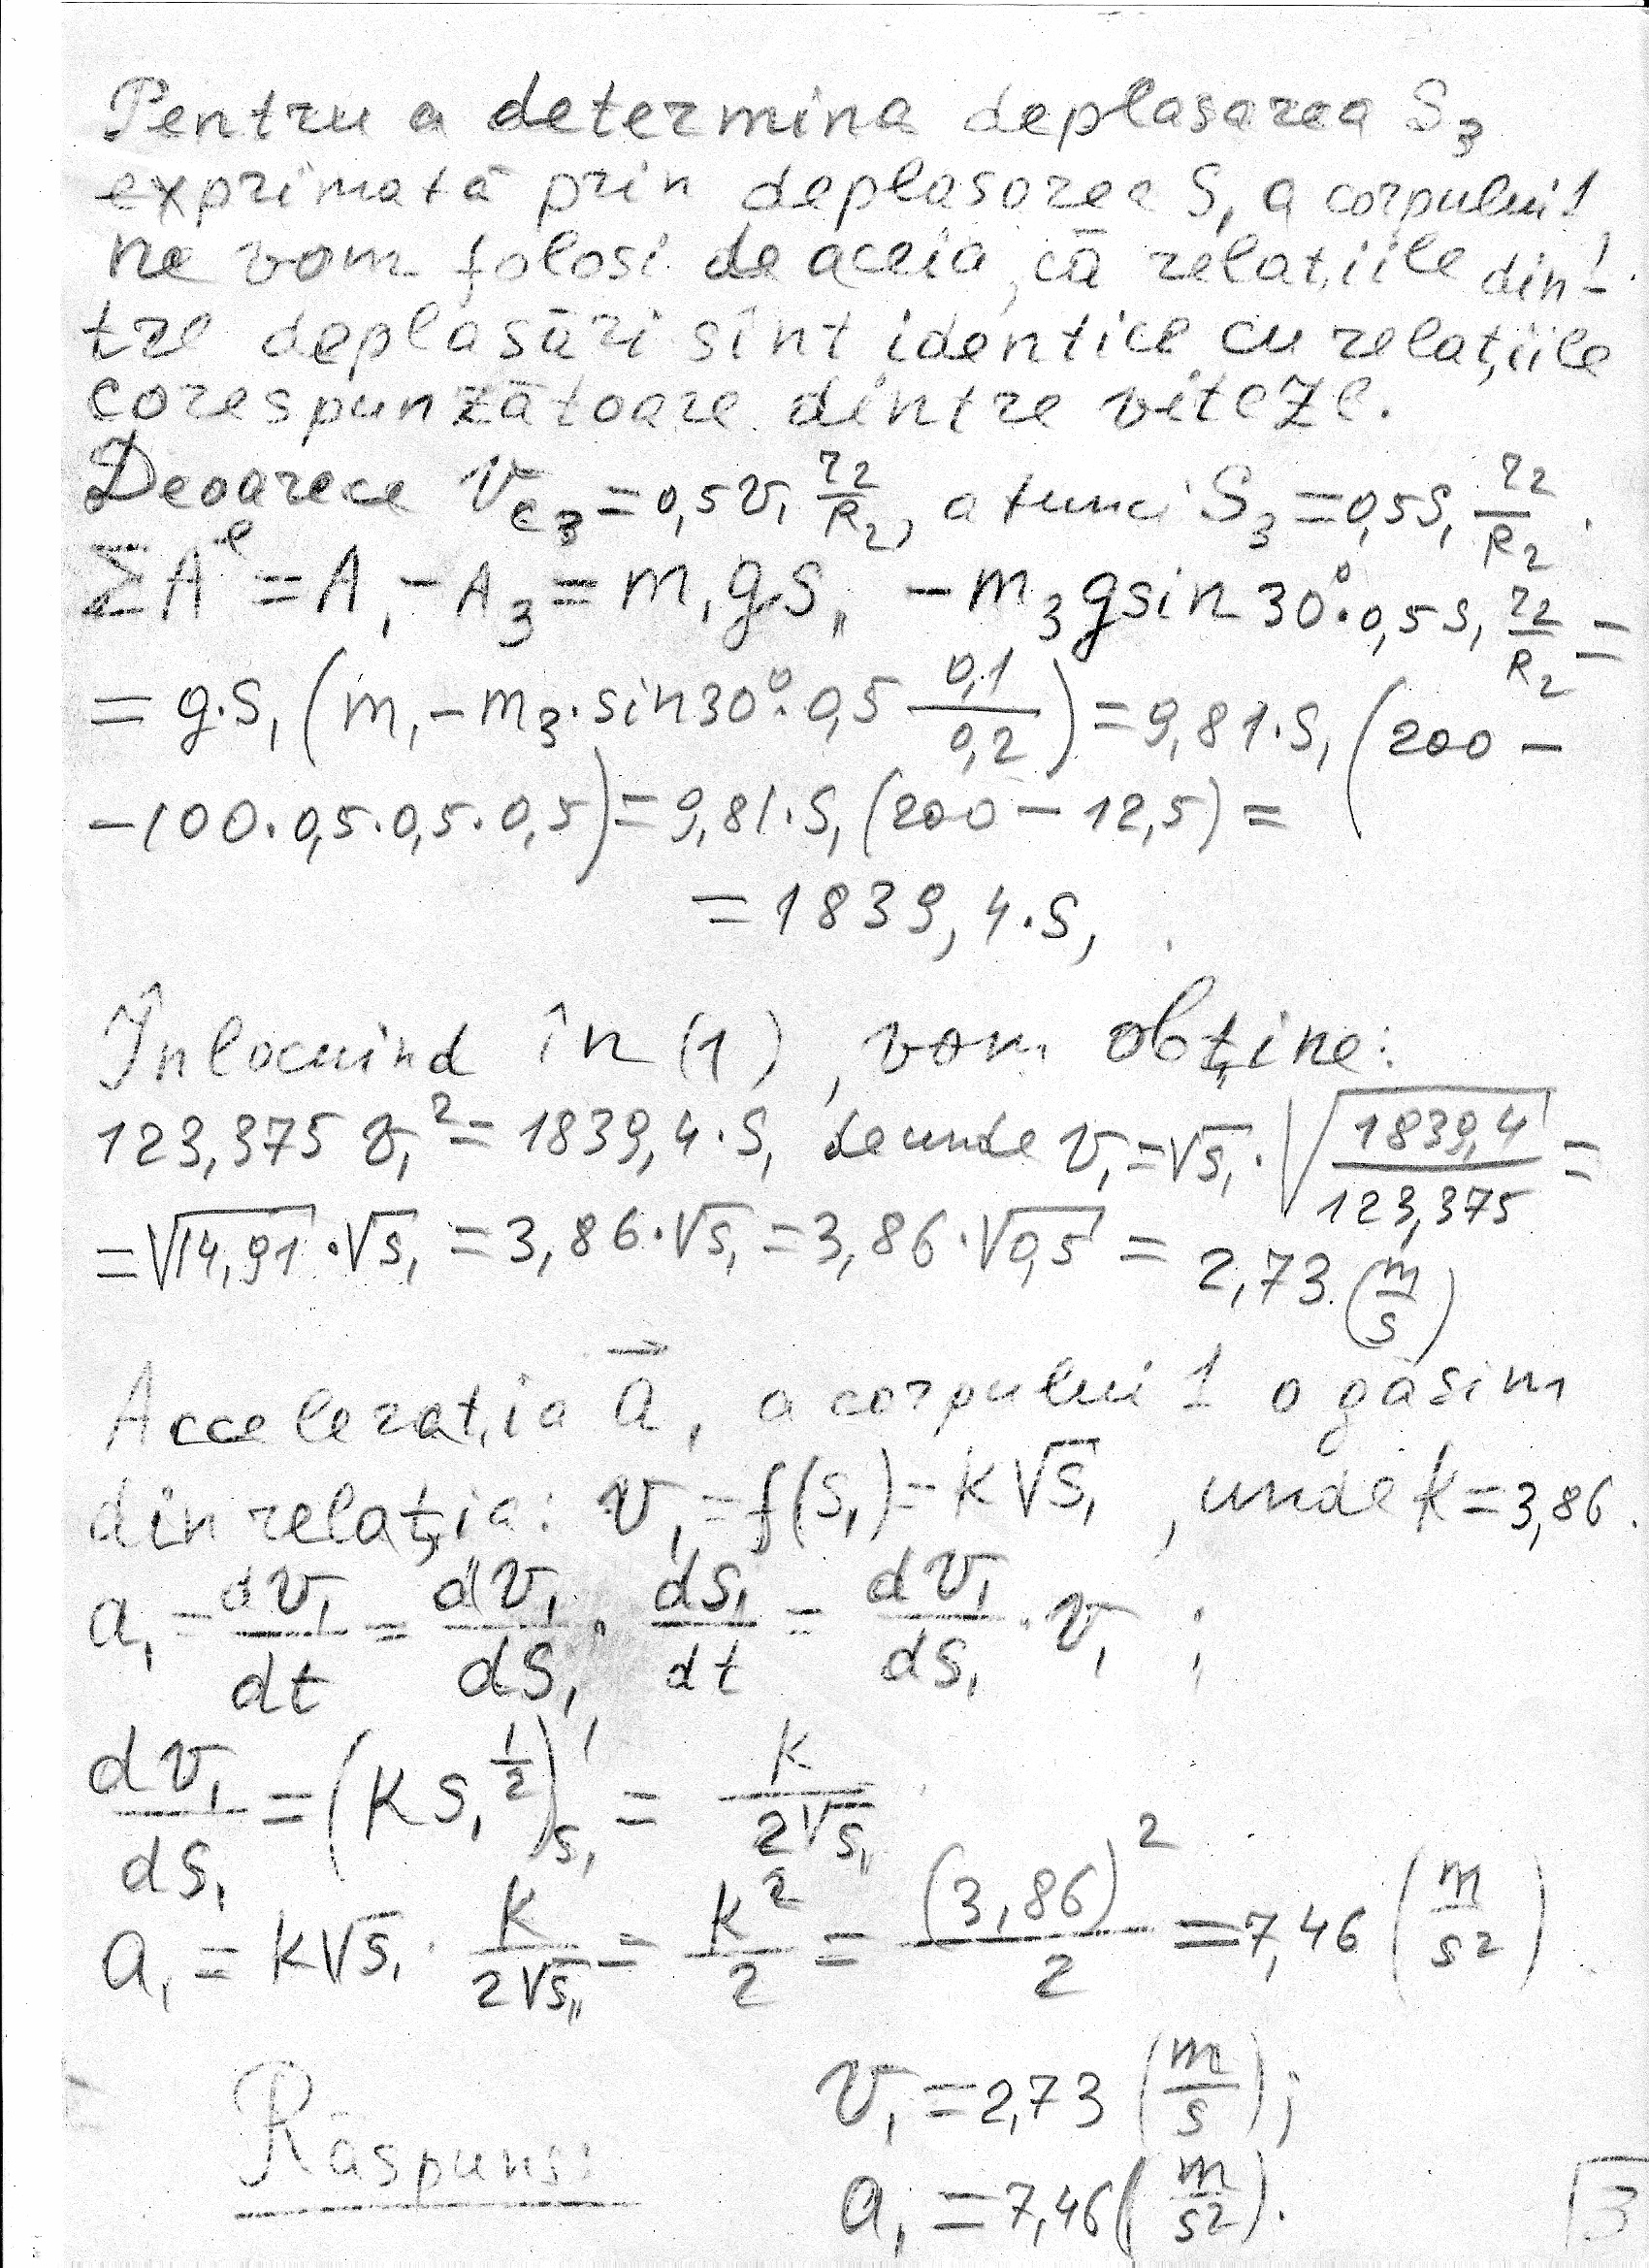 Pentru a determina deplasarea S₃
exprimată prin deplasarea S₁ a corpului 1
ne vom folosi de aceia, că relațiile din-
tre deplasări sînt identice cu relațiile
corespunzătoare dintre viteze.
Deoarece v_C₃ = 0,5 v₁ r₂/R₂, atunci S₃ = 0,5 S₁ r₂/R₂.
ΣA^e = A₁ - A₃ = m₁gS₁ - m₃g sin 30°·0,5 S₁ r₂/R₂ =
= g·S₁ (m₁ - m₃·sin30°·0,5 0,1/0,2) = 9,81·S₁ (200 -
-100·0,5·0,5·0,5) = 9,81·S₁ (200 - 12,5) =
= 1839,4·S₁.
Înlocuind în (1), vom obține:
123,375 v₁² = 1839,4·S₁, de unde v₁ = √s₁ · √(1839,4/123,375) =
= √14,91 · √s₁ = 3,86·√s₁ = 3,86·√0,5 = 2,73 (m/s)
Accelerația a⃗₁ a corpului 1 o găsim
din relația: v₁ = f(s₁) = k√s₁, unde k = 3,86.
a₁ = dv₁/dt = dv₁/ds₁ · ds₁/dt = dv₁/ds₁ · v₁ ;
dv₁/ds₁ = (k s₁^½)'_s₁ = k/2√s₁
a₁ = k√s₁ · k/2√s₁ = k²/2 = (3,86)²/2 = 7,46 (m/s²)
Răspuns: v₁ = 2,73 (m/s);
a₁ = 7,46 (m/s²).
3